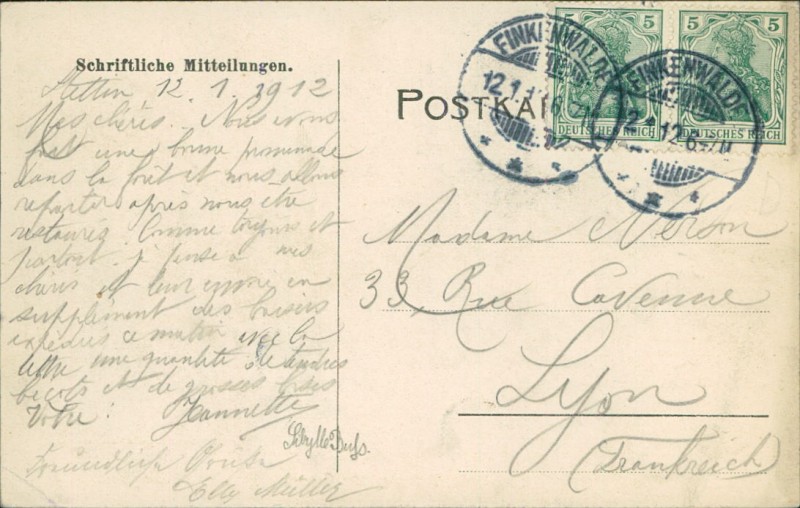 Schriftliche Mitteilungen.
Stettin 12. 1. 1912
Mes chéris. Nous avons
fait une bonne promenade
dans la forêt et nous allons
repartir après nous être
restaurés. Comme toujours et
partout je pense à mes
chéris et leur envoie en
supplément des baisers
expédiés ce matin avec la
lettre une quantité de tendres
bécots et de grosses bises
Votre Jeannette
Sibylle
Freundliche Grüße
Elly Müller
POSTKA
5 5
DEUTSCHES REICH
5 5
DEUTSCHES REICH
FINKENWALDE
12.1.
FINKENWALDE
12.1.12.6-7N
Madame Nerson
33, Rue Cavenne
Lyon
(Frankreich)